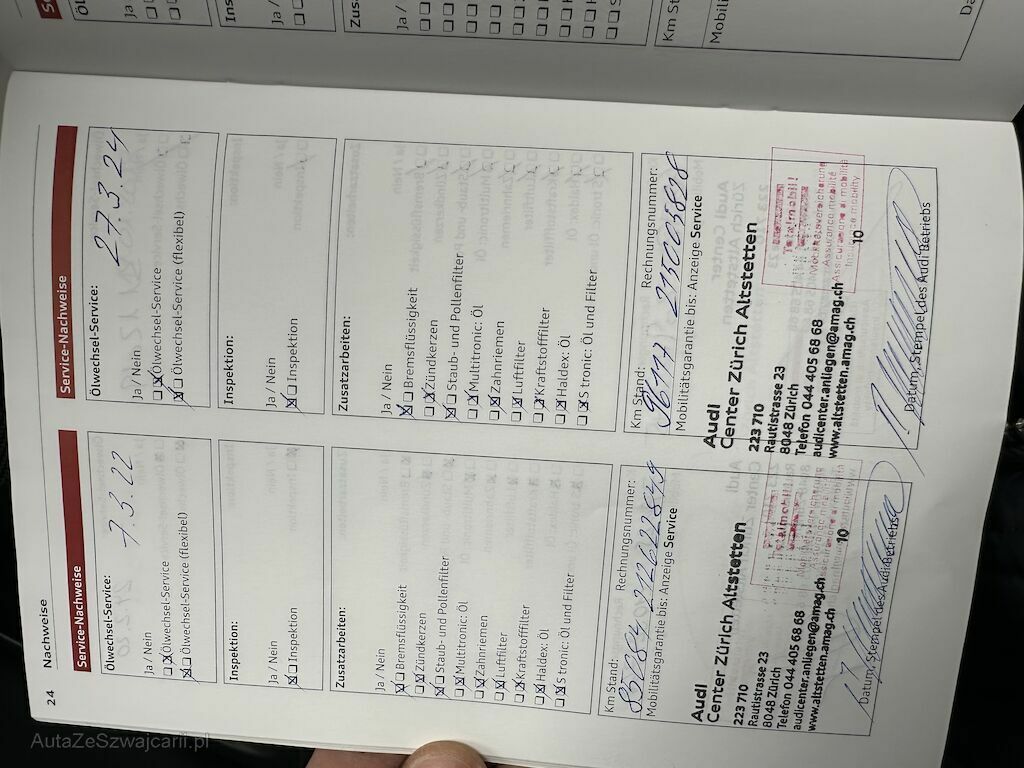 24
Nachweise
Service-Nachweise
Ölwechsel-Service:
7.3.22
Ja / Nein
Ölwechsel-Service
Ölwechsel-Service (flexibel)
Inspektion:
Ja / Nein
Inspektion
Zusatzarbeiten:
Ja / Nein
Bremsflüssigkeit
Zündkerzen
Staub- und Pollenfilter
Multitronic: Öl
Zahnriemen
Luftfilter
Kraftstofffilter
Haldex: Öl
S tronic: Öl und Filter
Km Stand: Rechnungsnummer:
Mobilitätsgarantie bis: Anzeige Service
Audi
Center Zürich Altstetten
223 710
Rautistrasse 23
8048 Zürich
Telefon 044 405 68 68
audicenter.anliegen@amag.ch
www.altstetten.amag.ch
10
Totalmobil!
Datum, Stempel des Audi Betriebs
Service-Nachweise
Ölwechsel-Service:
27.3.24
Ja / Nein
Ölwechsel-Service
Ölwechsel-Service (flexibel)
Inspektion:
Ja / Nein
Inspektion
Zusatzarbeiten:
Ja / Nein
Bremsflüssigkeit
Zündkerzen
Staub- und Pollenfilter
Multitronic: Öl
Zahnriemen
Luftfilter
Kraftstofffilter
Haldex: Öl
S tronic: Öl und Filter
Km Stand: Rechnungsnummer:
96117 21503828
Mobilitätsgarantie bis: Anzeige Service
Audi
Center Zürich Altstetten
223 710
Rautistrasse 23
8048 Zürich
Telefon 044 405 68 68
audicenter.anliegen@amag.ch
www.altstetten.amag.ch
10
Totalmobil!
Mobilitätsversicherung
Assurance mobilité
Assicurazione mobilità
Insurance mobility
Datum, Stempel des Audi Betriebs
Ja /
Km Sta
Mobili
AutaZeSzwajcarii.pl